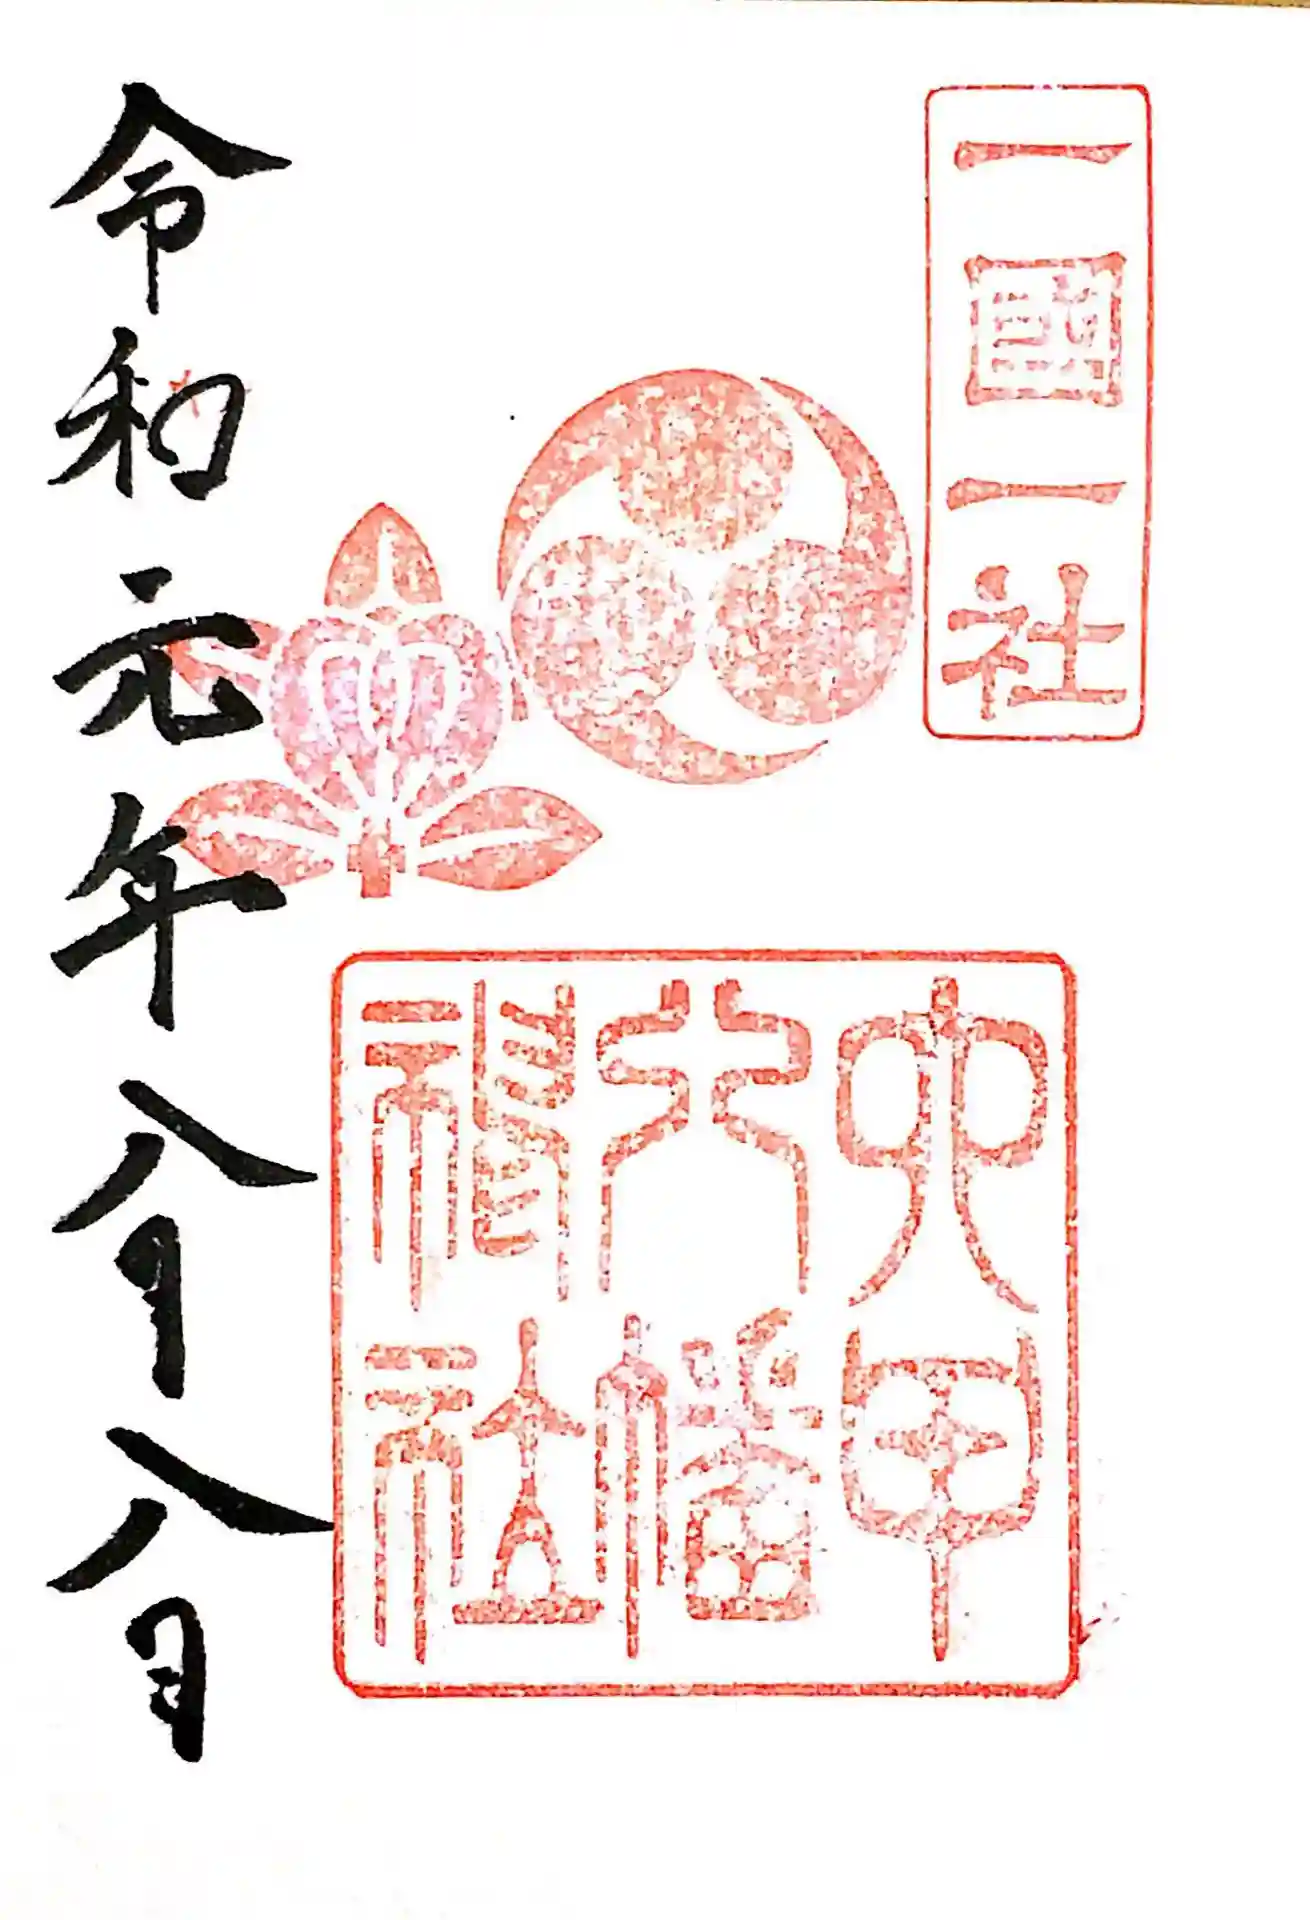 一國一社
大甲
八幡
神社
令和元年八月八日